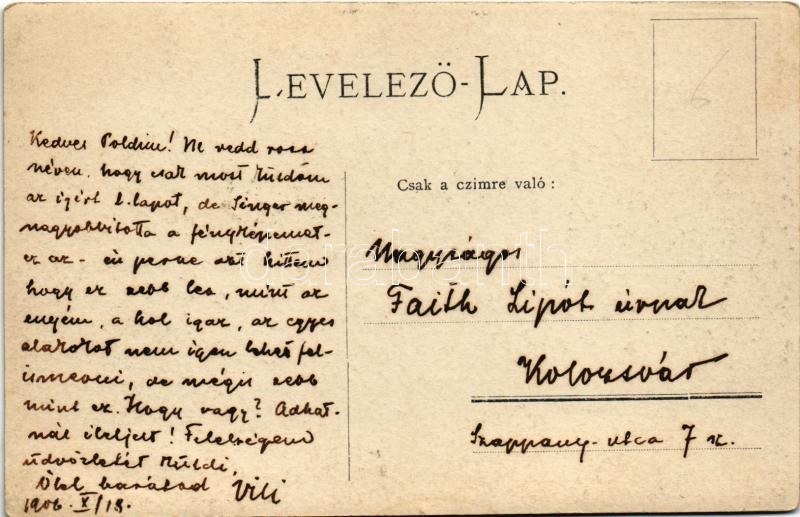 LEVELEZŐ-LAP.
6
Csak a czimre való:
Kedves Poldim! Ne vedd rosz
néven, hogy csak most küldöm
az igért l.lapot, de Singer meg-
nagyobbitotta a fényképemet-
ez az - én persze azt hittem
hogy ez szebb lesz, mint az
enyém, a hol igaz, az egyes
alakokat nem igen lehet fel-
ismerni, de mégis szebb
mint ez. Hogy vagy? Adhat-
nál életjelt! Feleségem
üdvözletét küldi,
Ölel barátod Vili
1906. X/18.
Nagyságos
Faith Lipót úrnak
Kolozsvár
Szappany-utca 7 sz.
darabanth